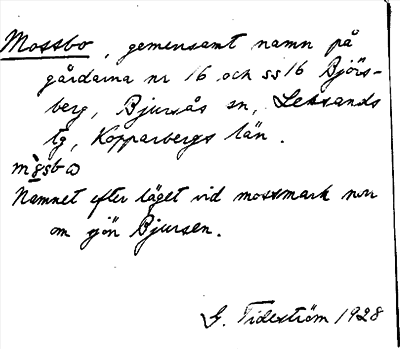 Mossbo, gemensamt namn på
gårdarna nr 16 och ss 16 Björs-
berg, Bjursås sn, Leksands
tg, Kopparbergs län.
Namnet efter läget vid mossmark norr
om sjön Bjursen.
G. Tideström 1928